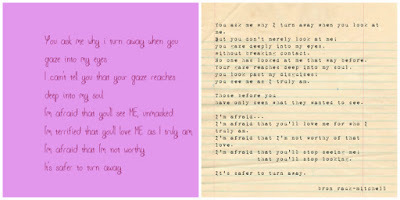 You ask me why i turn away when you
gaze into my eyes
I can't tell you that your gaze reaches
deep into my soul
I'm afraid that you'll see ME, unmasked
I'm terrified that you'll love ME as I truly am
I'm afraid that I'm not worthy
It's safer to turn away
You ask me why I turn away when you look at
me.
But you don't merely look at me;
you gaze deeply into my eyes,
without breaking contact.
No one has looked at me that way before.
Your gaze reaches deep into my soul.
you look past my disguises;
you see me as I truly am.
Those before you
have only seen what they wanted to see.
I'm afraid...
I'm afraid that you'll love me for who I
truly am.
I'm afraid that I'm not worthy of that
love.
I'm afraid that you'll stop seeing me;
that you'll stop looking.
It's safer to turn away.